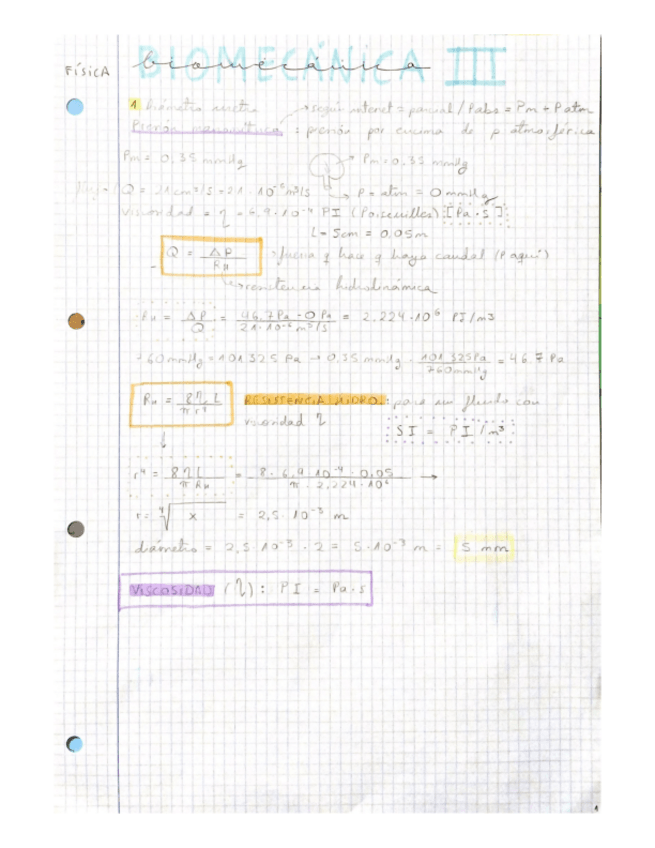 FÍSICA
BIOMECÁNICA III
biomecánica
1 Diámetro uretra → según internet = parcial / Pabs = Pm + Patm
Presión manométrica : presión por encima de p. atmosférica
Pm = 0.35 mmHg
Pm = 0.35 mmHg
Q = 21 cm³/s = 21 · 10⁻⁶ m³/s
P = atm = 0 mmHg
viscosidad = η = 6.9 · 10⁻⁴ PI (Poiseuilles) [Pa · s]
L = 5cm = 0.05m
Q = ΔP / RH → fuerza q hace q haya caudal (P aquí)
→ resistencia hidrodinámica
RH = ΔP / Q = 46.7 Pa - 0 Pa / 21 · 10⁻⁶ m³/s = 2.224 · 10⁶ PI/m3
760 mmHg = 101 325 Pa → 0.35 mmHg · 101 325Pa / 760mmHg = 46.7 Pa
RH = 8 η L / π r⁴ RESISTENCIA HIDRO. : para un fluido con
viscosidad η
SI = PI / m³
r⁴ = 8 η L / π RH = 8 · 6.9 · 10⁻⁴ · 0.05 / π · 2.224 · 10⁶ →
r = ⁴√x = 2,5 · 10⁻³ m
diámetro = 2,5 · 10⁻³ · 2 = 5 · 10⁻³ m = 5 mm
VISCOSIDAD (η) : PI = Pa · s